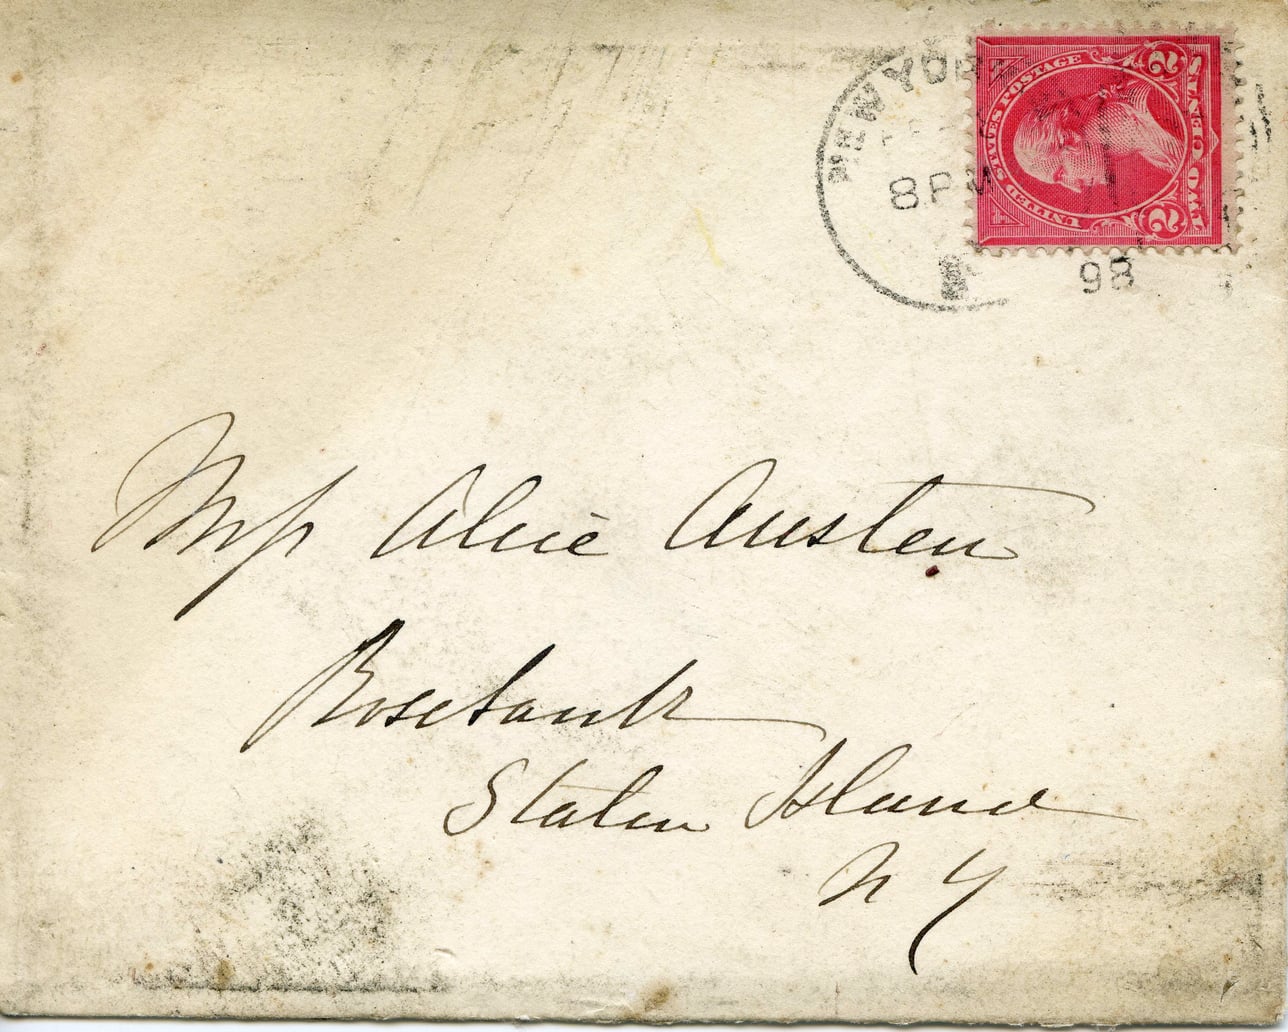 NEW YORK
8 PM
98
UNITED STATES POSTAGE
2 TWO CENTS 2
Miss Alice Austen
Rosebank
Staten Island
N Y